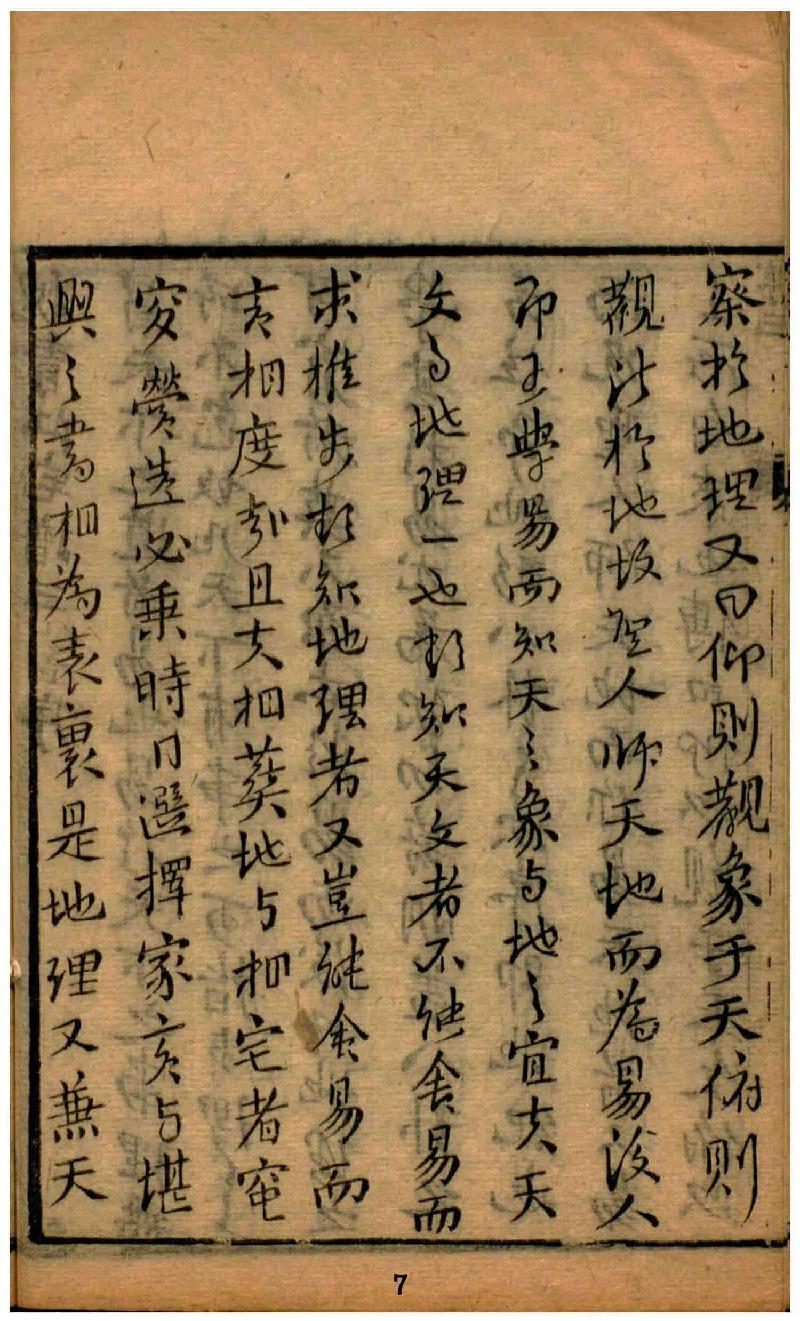 察於地理又曰仰則觀象于天俯則
觀法於地故聖人師天地而為易後人
即是學易而知天之象与地之宜夫天
文与地理一也彼知天文者不能舍易而
求推步彼知地理者又豈能舍易而
言相度哉且夫相葬地与相宅者窀
穸營造必乗時日選擇家言与堪
輿之書相為表裏是地理又兼天
7